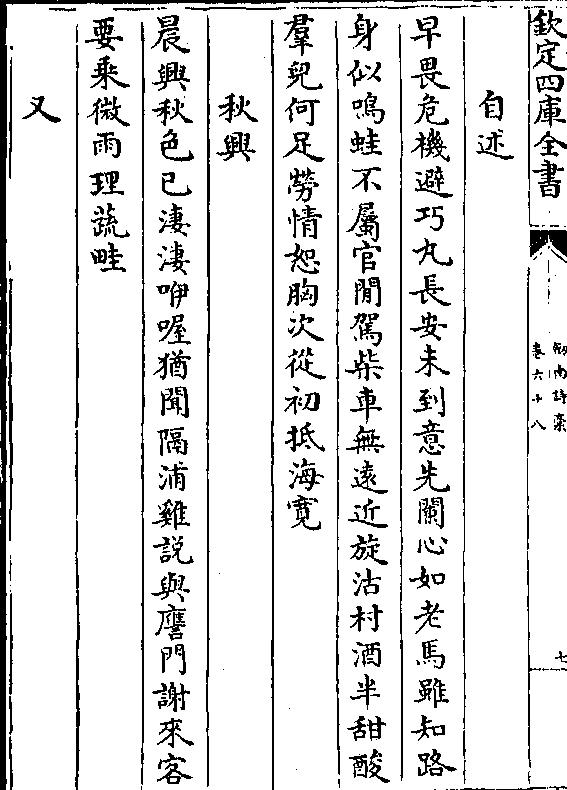 欽定四庫全書
劒南詩藁
卷六十八
七
自述
早畏危機避巧丸長安未到意先闌心如老馬雖知路
身似鳴蛙不屬官閒駕柴車無遠近旋沽村酒半甜酸
羣兒何足勞情恕胸次從初抵海寛
秋興
晨興秋色已淒淒咿喔猶聞隔浦雞説與譍門謝來客
要乘微雨理蔬畦
又